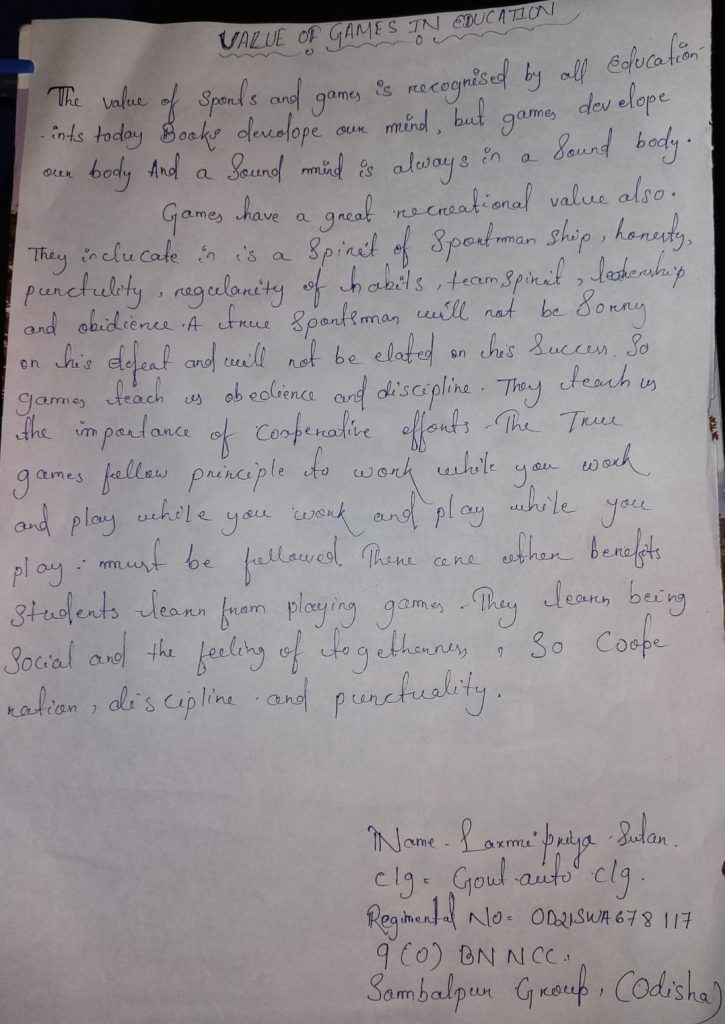 VALUE OF GAMES IN EDUCATION
The value of sports and games is recognised by all Education-
-ints today Books develope our mind, but games develope
our body And a sound mind is always in a sound body.
Games have a great recreational value also.
They inclucate in is a spirit of sportman ship, honesty,
punctulity, regularity of habits, team spirit, leadership
and obidience. A true sportsman will not be sorry
on his defeat and will not be elated on his success. So
games teach us obedience and discipline. They teach us
the importance of cooperative efforts. The True
games follow principle to work while you work
and play while you work and play while you
play. must be followed. There are other benefits
students learn from playing games. They learn being
social and the feeling of togetherness, so coope
ration, discipline and punctuality.
Name - Laxmipriya Sutar.
clg - Govt auto clg.
Regimental No - OD21SWA678117
9 (O) BN NCC.
Sambalpur Group, (Odisha)